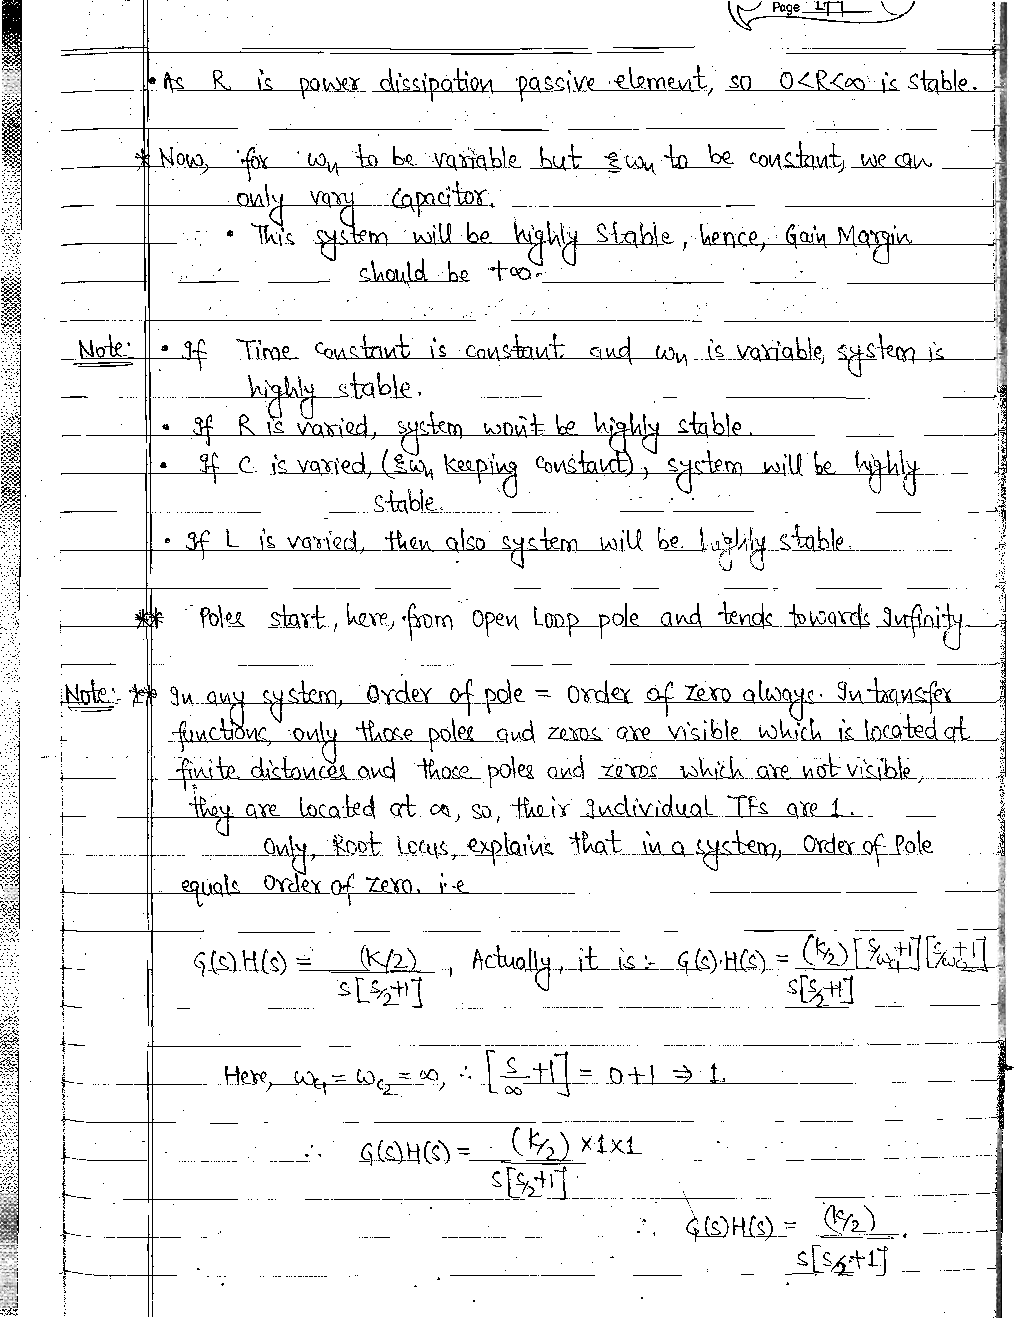 Page 177
• As R is power dissipation passive element, so 0<R<∞ is stable.
* Now, for ωn to be variable but ξωn to be constant, we can
only vary capacitor.
• This system will be highly Stable, hence, Gain Margin
should be +∞.
Note: • If Time constant is constant and ωn is variable, system is
highly stable.
• If R is varied, system won't be highly stable.
• If C is varied, (ξωn keeping constant), system will be highly
stable.
• If L is varied, then also system will be highly stable.
** Poles start, here, from Open Loop pole and tends towards Infinity.
Note: ** In any system, Order of pole = Order of zero always. In transfer
functions, only those poles and zeros are visible which is located at
finite distances and those poles and zeros which are not visible,
they are located at ∞, so, their Individual TFs are 1.
Only, Root Locus, explains that in a system, Order of Pole
equals Order of zero. i.e
G(s)H(s) = (K/2) / s[s/2+1] , Actually, it is :- G(s).H(s) = (K/2)[s/ωc1+1][s/ωc2+1] / s[s/2+1]
Here, ωc1 = ωc2 = ∞, ∴ [s/∞ +1] = 0+1 ⇒ 1.
∴ G(s)H(s) = (K/2) ×1×1 / s[s/2+1]
∴ G(s)H(s) = (K/2) / s[s/2+1] .